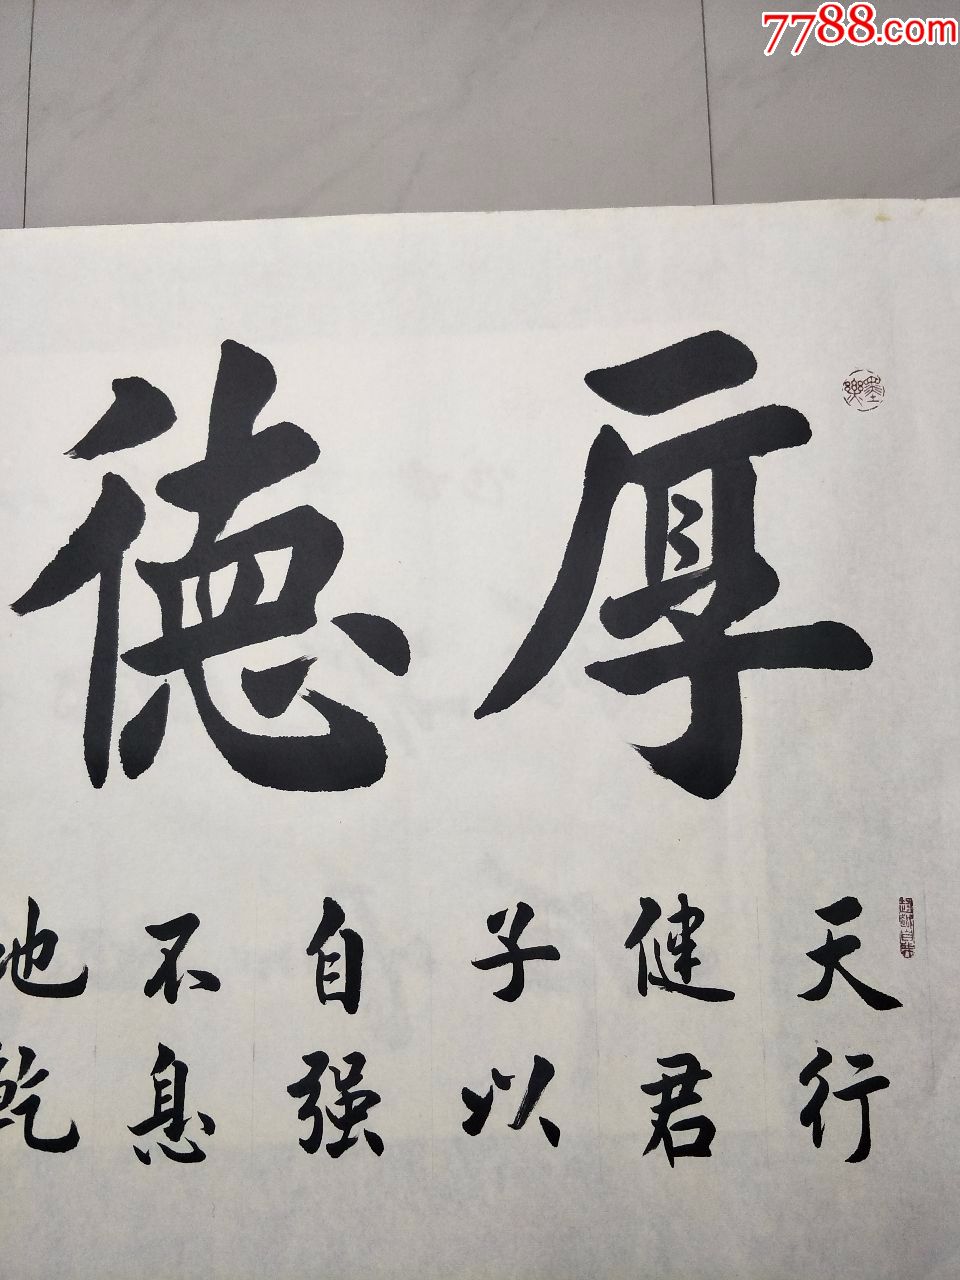 7788.com
厚德
天行
健君
子以
自强
不息
地乾